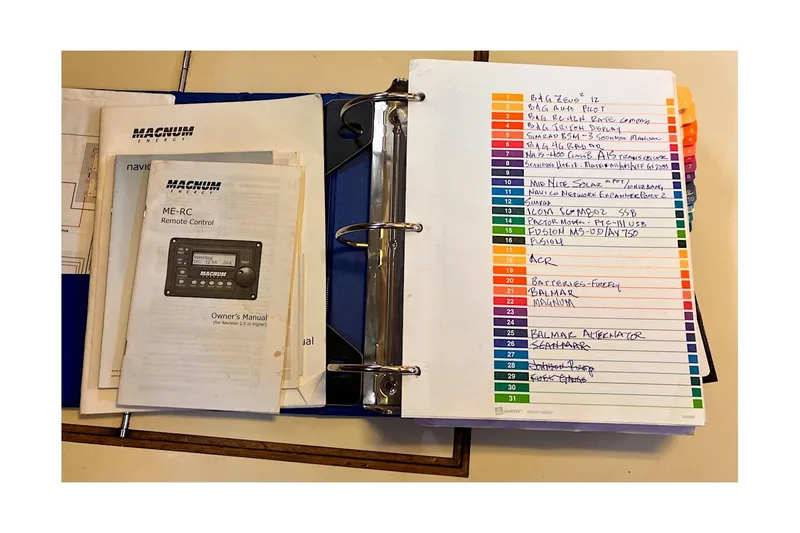 MAGNUM
ENERGY
navic
MAGNUM
ENERGY
ME-RC
Remote Control
MAGNUM
Owner's Manual
(for Revision 2.5 or higher)
ual
1 B&G ZEUS² 12
2 B&G AUTO PILOT
3 B&G RC42N RATE COMPASS
4 B&G TRITON DISPLAY
5 SIMRAD BSM-3 SOUNDER MANUAL
6 B&G 4G RADAR
7 NAIS-400 CLASS B AIS TRANSCEIVER
8
9
10 MIDNITE SOLAR MPPT
11 NAVICO NETWORK EXPANDER PORT 2
12 SIMRAD
13 ICOM ICM802 SSB
14 PACTOR MODEM - PTC-III USB
15 FUSION MS-UD/AV 750
16 FUSION
17
18 ACR
19
20 BATTERIES-FIREFLY
21 BALMAR
22 MAGNUM
23
24
25 BALMAR ALTERNATOR
26 SCANMAR
27
28 JOHNSON PUMP
29 FUEL GAUGE
30
31
AVERY